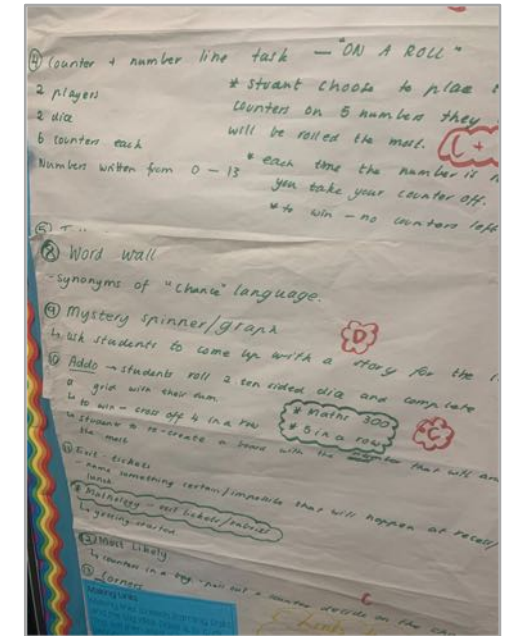 ④ Counter + number line task — "ON A ROLL"
2 players
2 dice
6 counters each
Numbers written from 0 – 13
* stuant choose to plae
counters on 5 numbers they
will be rolled the most.
* each time the number is
you take your counter off.
* to win – no counters left
⑤
⑧ Word wall
- synonyms of "chance" language.
⑨ Mystery spinner/graph
↳ ask students to come up with a story for the
D
⑩ Addo → students roll 2 ten sided dice and complete
a grid with their sum.
↳ to win – cross off 4 in a row
* Maths 300
* 5 in a row
C
↳ students to re-create a board with the number that will
the most
⑪ Exit-tickets
- name something certain/impossible that will happen at recess/
lunch
* Mathology – exit tickets/rubrics
↳ getting started
⑫ Most Likely
↳ counters in a bag – pull out a counter decide on the
⑬ Corners
C
Making Links